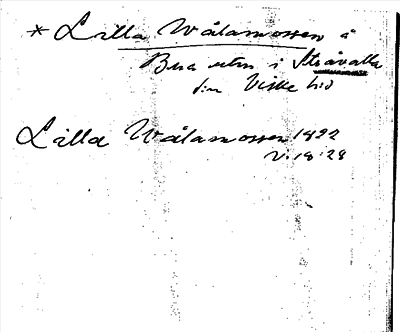 * Lilla Wålamossen å
Bua utm i Stråvalla
sn Viske hd
Lilla Wålamossen 1822
V: 18: 28